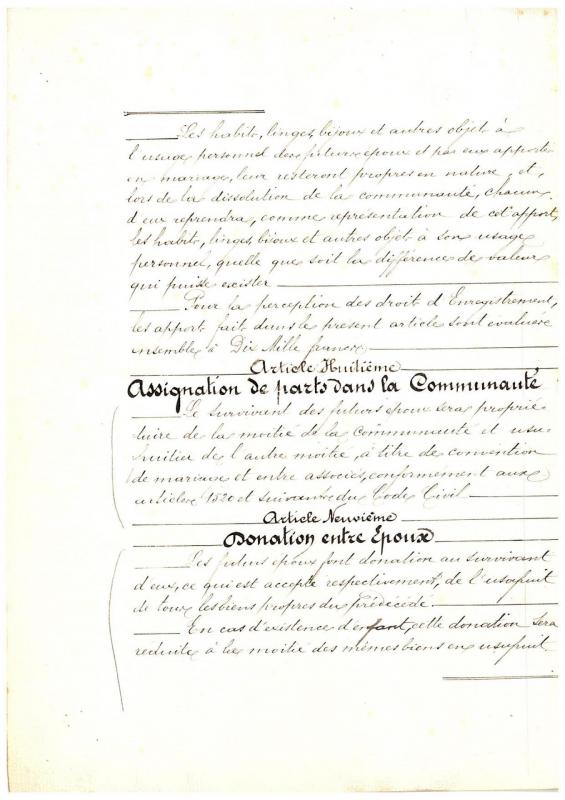 Les habits, linges, bijoux et autres objets à
l'usage personnel des futurs époux et par eux apportés
en mariage, leur resteront propres en nature, et,
lors de la dissolution de la communauté, chacun
d'eux reprendra, comme représentation de cet apport,
les habits, linges, bijoux et autres objets à son usage
personnel, quelle que soit la différence de valeur
qui puisse exister
Pour la perception des droits d'Enregistrement,
les apports faits dans le présent article sont évalués
ensemble à Dix Mille francs
Article Huitième
Assignation de parts dans la Communauté
Le survivant des futurs époux sera proprié-
taire de la moitié de la communauté et usu-
fruitier de l'autre moitié, à titre de convention
de mariage et entre associés, conformément aux
articles 1520 et suivants du Code Civil
Article Neuvième
Donation entre Epoux
Les futurs époux font donation au survivant
d'eux, ce qui est accepté respectivement, de l'usufruit
de tous les biens propres du prédécédé.
En cas d'existence d'enfant, cette donation sera
réduite à la moitié des mêmes biens en usufruit